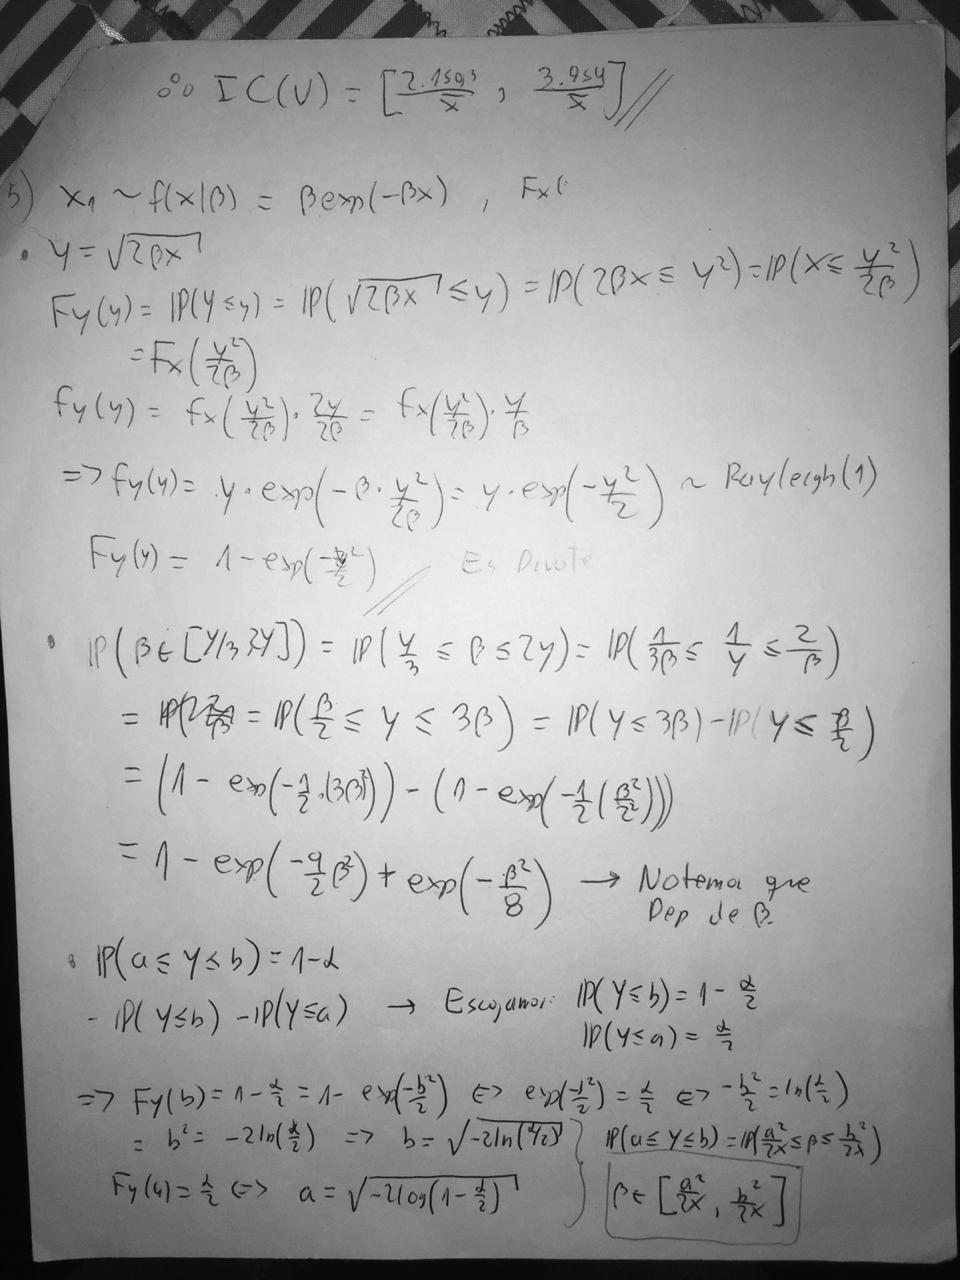 ∴ IC(V) = [2.1593/x̄ , 3.9954/x̄] //
5) X₁ ~ f(x|β) = β exp(-βx) , Fx(
• Y = √(2βx)
Fy(y) = IP(Y ≤ y) = IP(√(2βx) ≤ y) = IP(2βx ≤ y²) = IP(X ≤ y²/2β)
= Fx(y²/2β)
fy(y) = fx(y²/2β) · 2y/2β = fx(y²/2β) · y/β
=> fy(y) = y · exp(-β · y²/2β) = y · exp(-y²/2) ~ Rayleigh(1)
Fy(y) = 1 - exp(-y²/2) // Es Pivote
• IP(β ∈ [Y/3, 2Y]) = IP(Y/3 ≤ β ≤ 2Y) = IP(1/3β ≤ 1/Y ≤ 2/β)
= IP(β/2 ≤ Y ≤ 3β) = IP(Y ≤ 3β) - IP(Y ≤ β/2)
= (1 - exp(-1/2 · (3β)²)) - (1 - exp(-1/2 (β²/2²)))
= 1 - exp(-9/2 β²) + exp(-β²/8) → Notema que
Dep de β.
• IP(a ≤ Y ≤ b) = 1-α
- IP(Y ≤ b) - IP(Y ≤ a) → Escojamos: IP(Y ≤ b) = 1 - α/2
IP(Y ≤ a) = α/2
=> Fy(b) = 1 - α/2 = 1 - exp(-b²/2) <=> exp(-b²/2) = α/2 <=> -b²/2 = ln(α/2)
= b² = -2ln(α/2) => b = √(-2ln(α/2)) } IP(a ≤ Y ≤ b) = IP(a²/2x ≤ β ≤ b²/2x)
Fy(a) = α/2 <=> a = √(-2log(1 - α/2)) β ∈ [a²/2x , b²/2x]